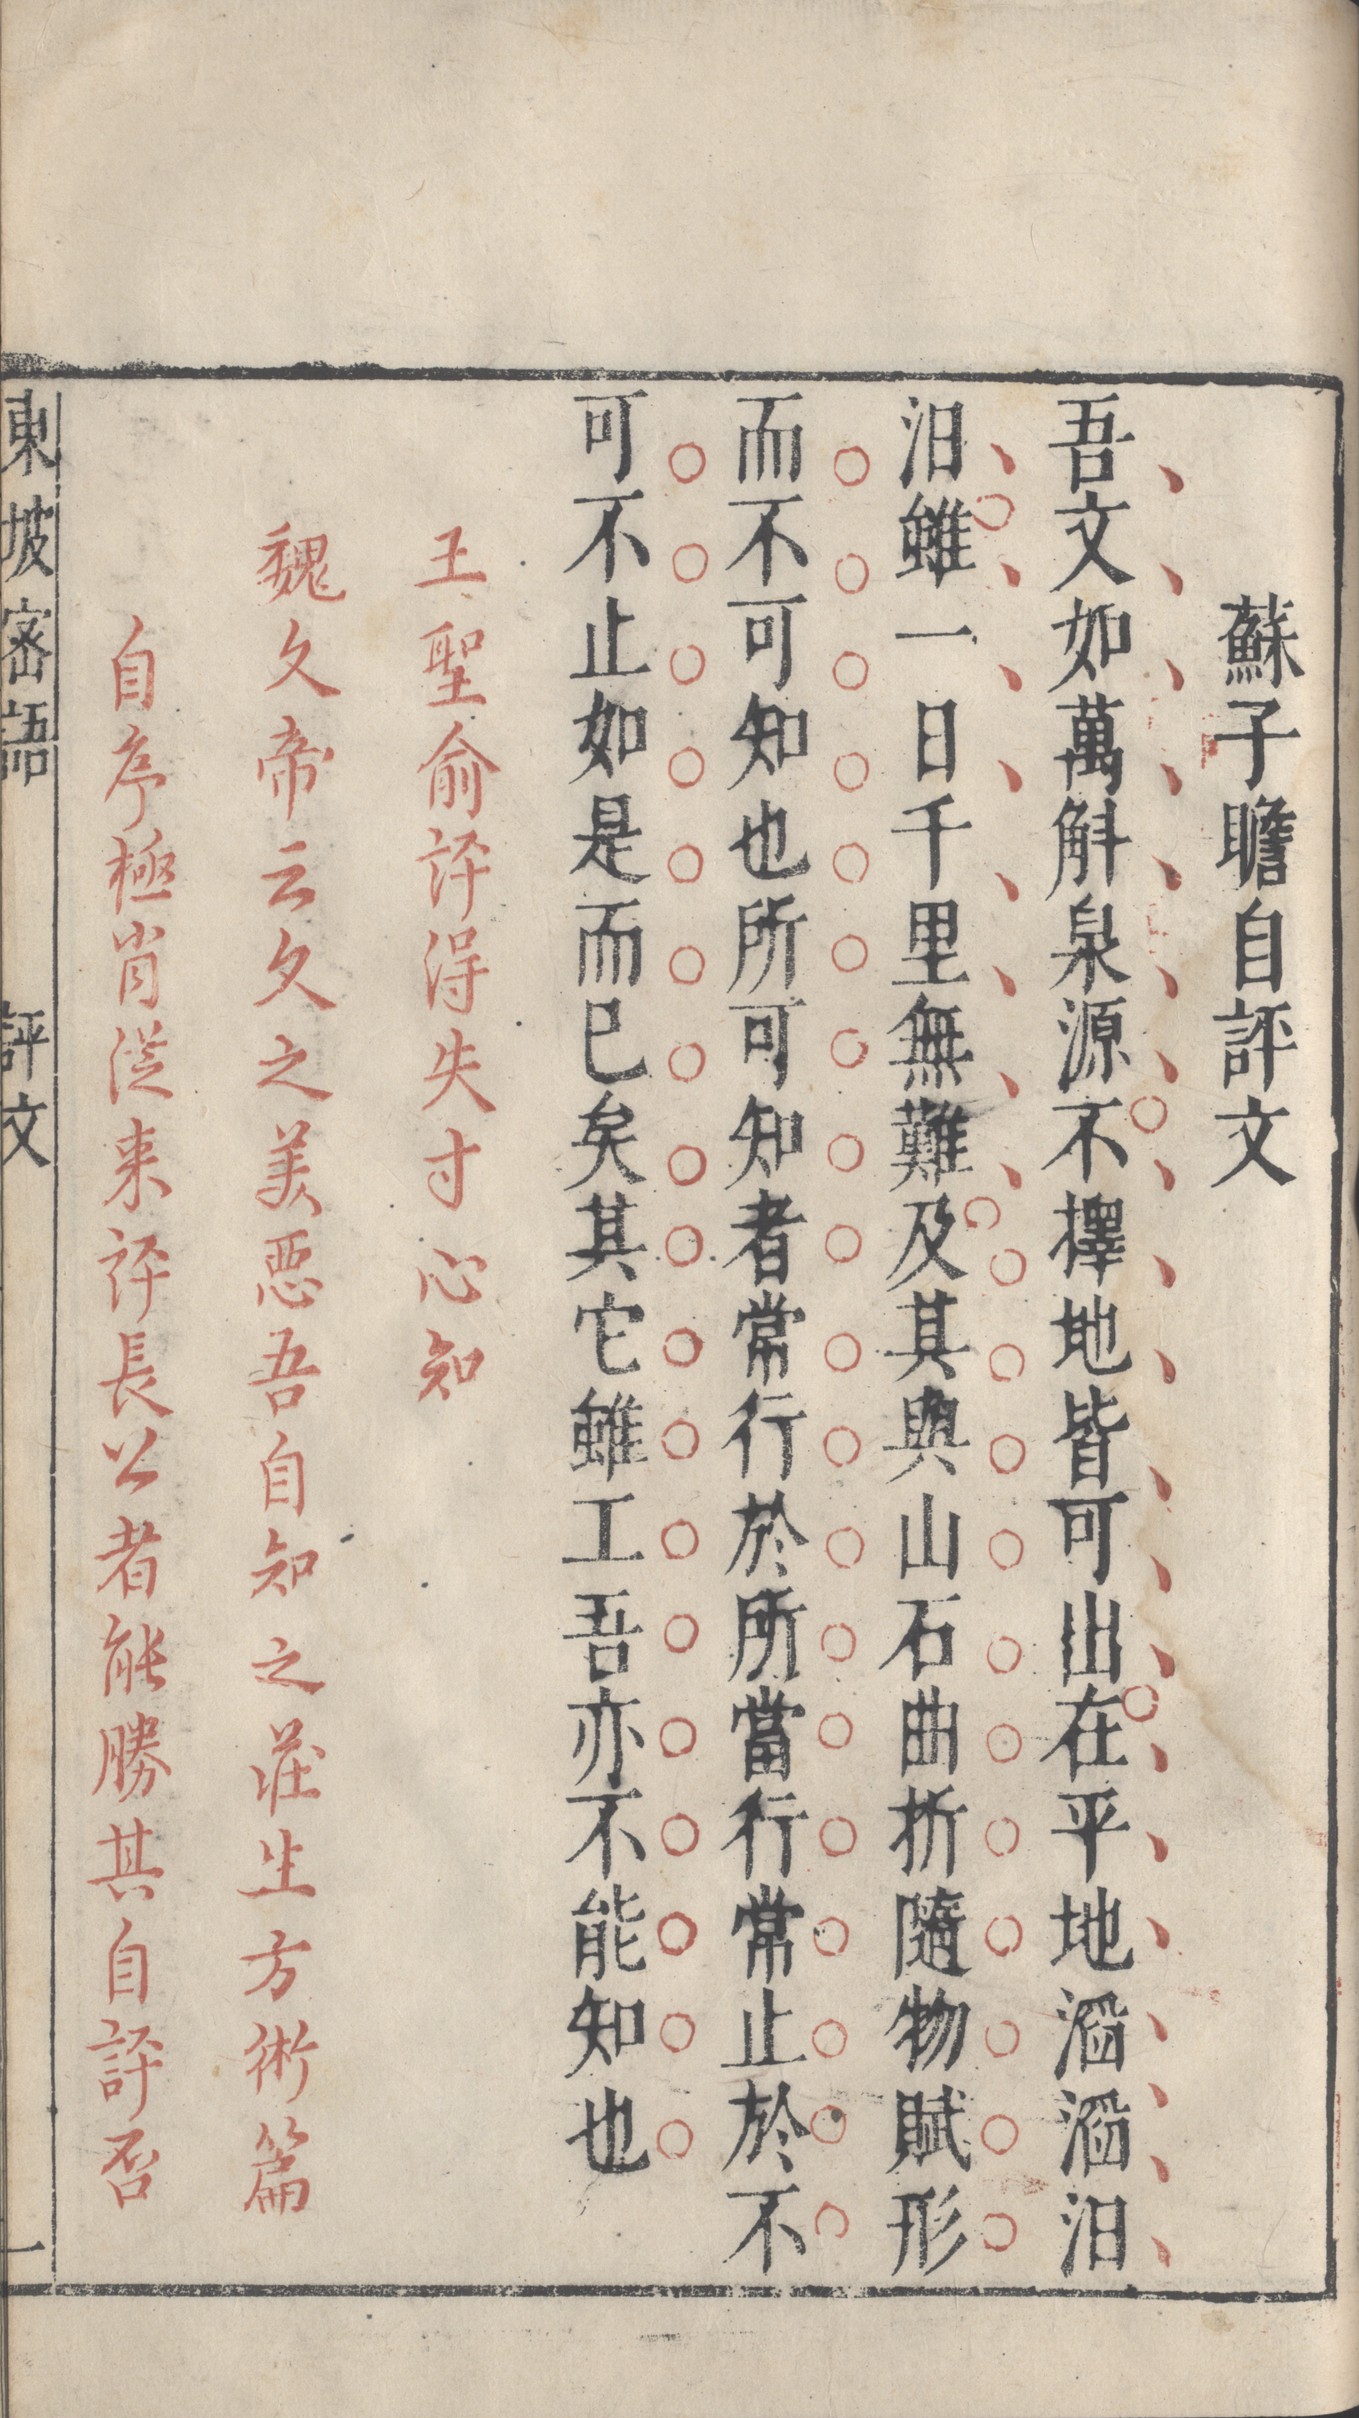 蘇子瞻自評文
吾文如萬斛泉源不擇地皆可出在平地滔滔汨
汨雖一日千里無難及其與山石曲折隨物賦形
而不可知也所可知者常行於所當行常止於不
可不止如是而已矣其它雖工吾亦不能知也
王聖俞評得失寸心知
魏文帝云文之美惡吾自知之莊生方術篇
自序極肖從來評長公者能勝其自評否
東坡密語 評文 一